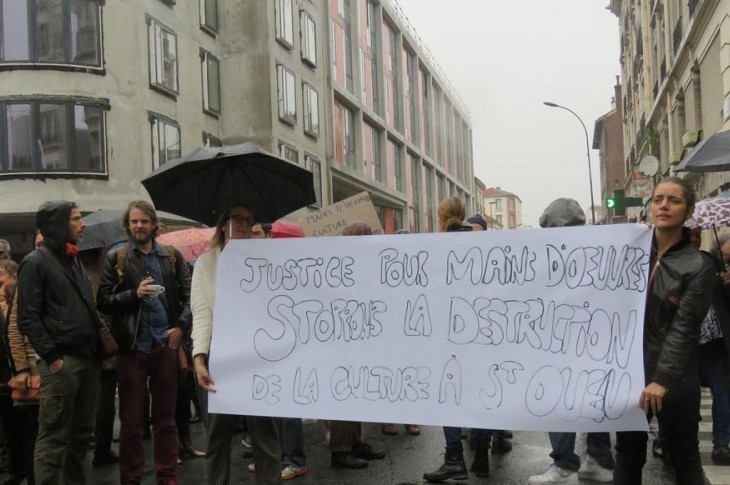 MAINS D'OEUVRES
CULTURE
JUSTICE POUR MAINS D'OEUVRES
STOPPONS LA DESTRUCTION
DE LA CULTURE À ST OUEN